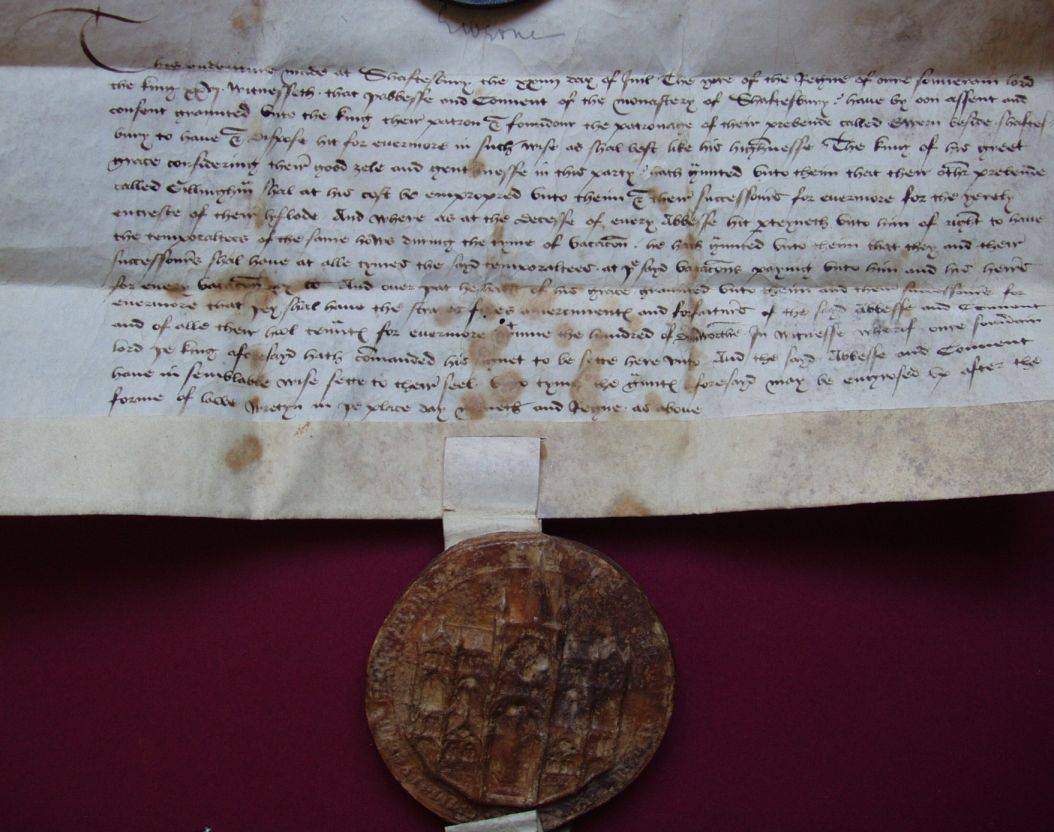 Ewerne
This endenture made at Shaftesbury the day of Juil The yere of the Regne of oure souverain lord
the king xxij. Witnesseth that thabbesse and Convent of the monastery of Shaftesbury have by oon assent and
consent graunted unto the king their patron & foundour the patronage of their prebende called Ewern beside Shaftes
bury to have & dispose hit for evermore in such wise as shal best like his highnesse The king of his greet
grace considering their good zele and gentilnesse in this party hath gunted unto theim that their othir prebende
called Gillingham shal at his cost be empropred unto theim & their successours for evermore for the yerely
encreste of their lyflode And where as at the decesse of every Abbesse hit pteyneth unto him of right to have
the temporaltees of the same hows during the tyme of vacacon he hath gunted unto theim that they and their
successours shal have at alle tymes the said temporaltees at þe said vacacons paying unto him and his heires
for every vacacon And over þat he hath of his grace graunted unto theim and their successours for
evermore that þey shal have the amerciments and forfaitures of the said Abbesse and Convent
and of alle their hool tenantz for evermore the hundred of In witnesse wherof oure souverain
lord þe king aforesaid hath comanded his signet to be sette here unto And the said Abbesse and Convent
have in semblable wise sette to their seel. unto tyme the guntz aforesaid may be engrosed up after the
forme of lawe Writyn in þe place day moneth and Regne as above